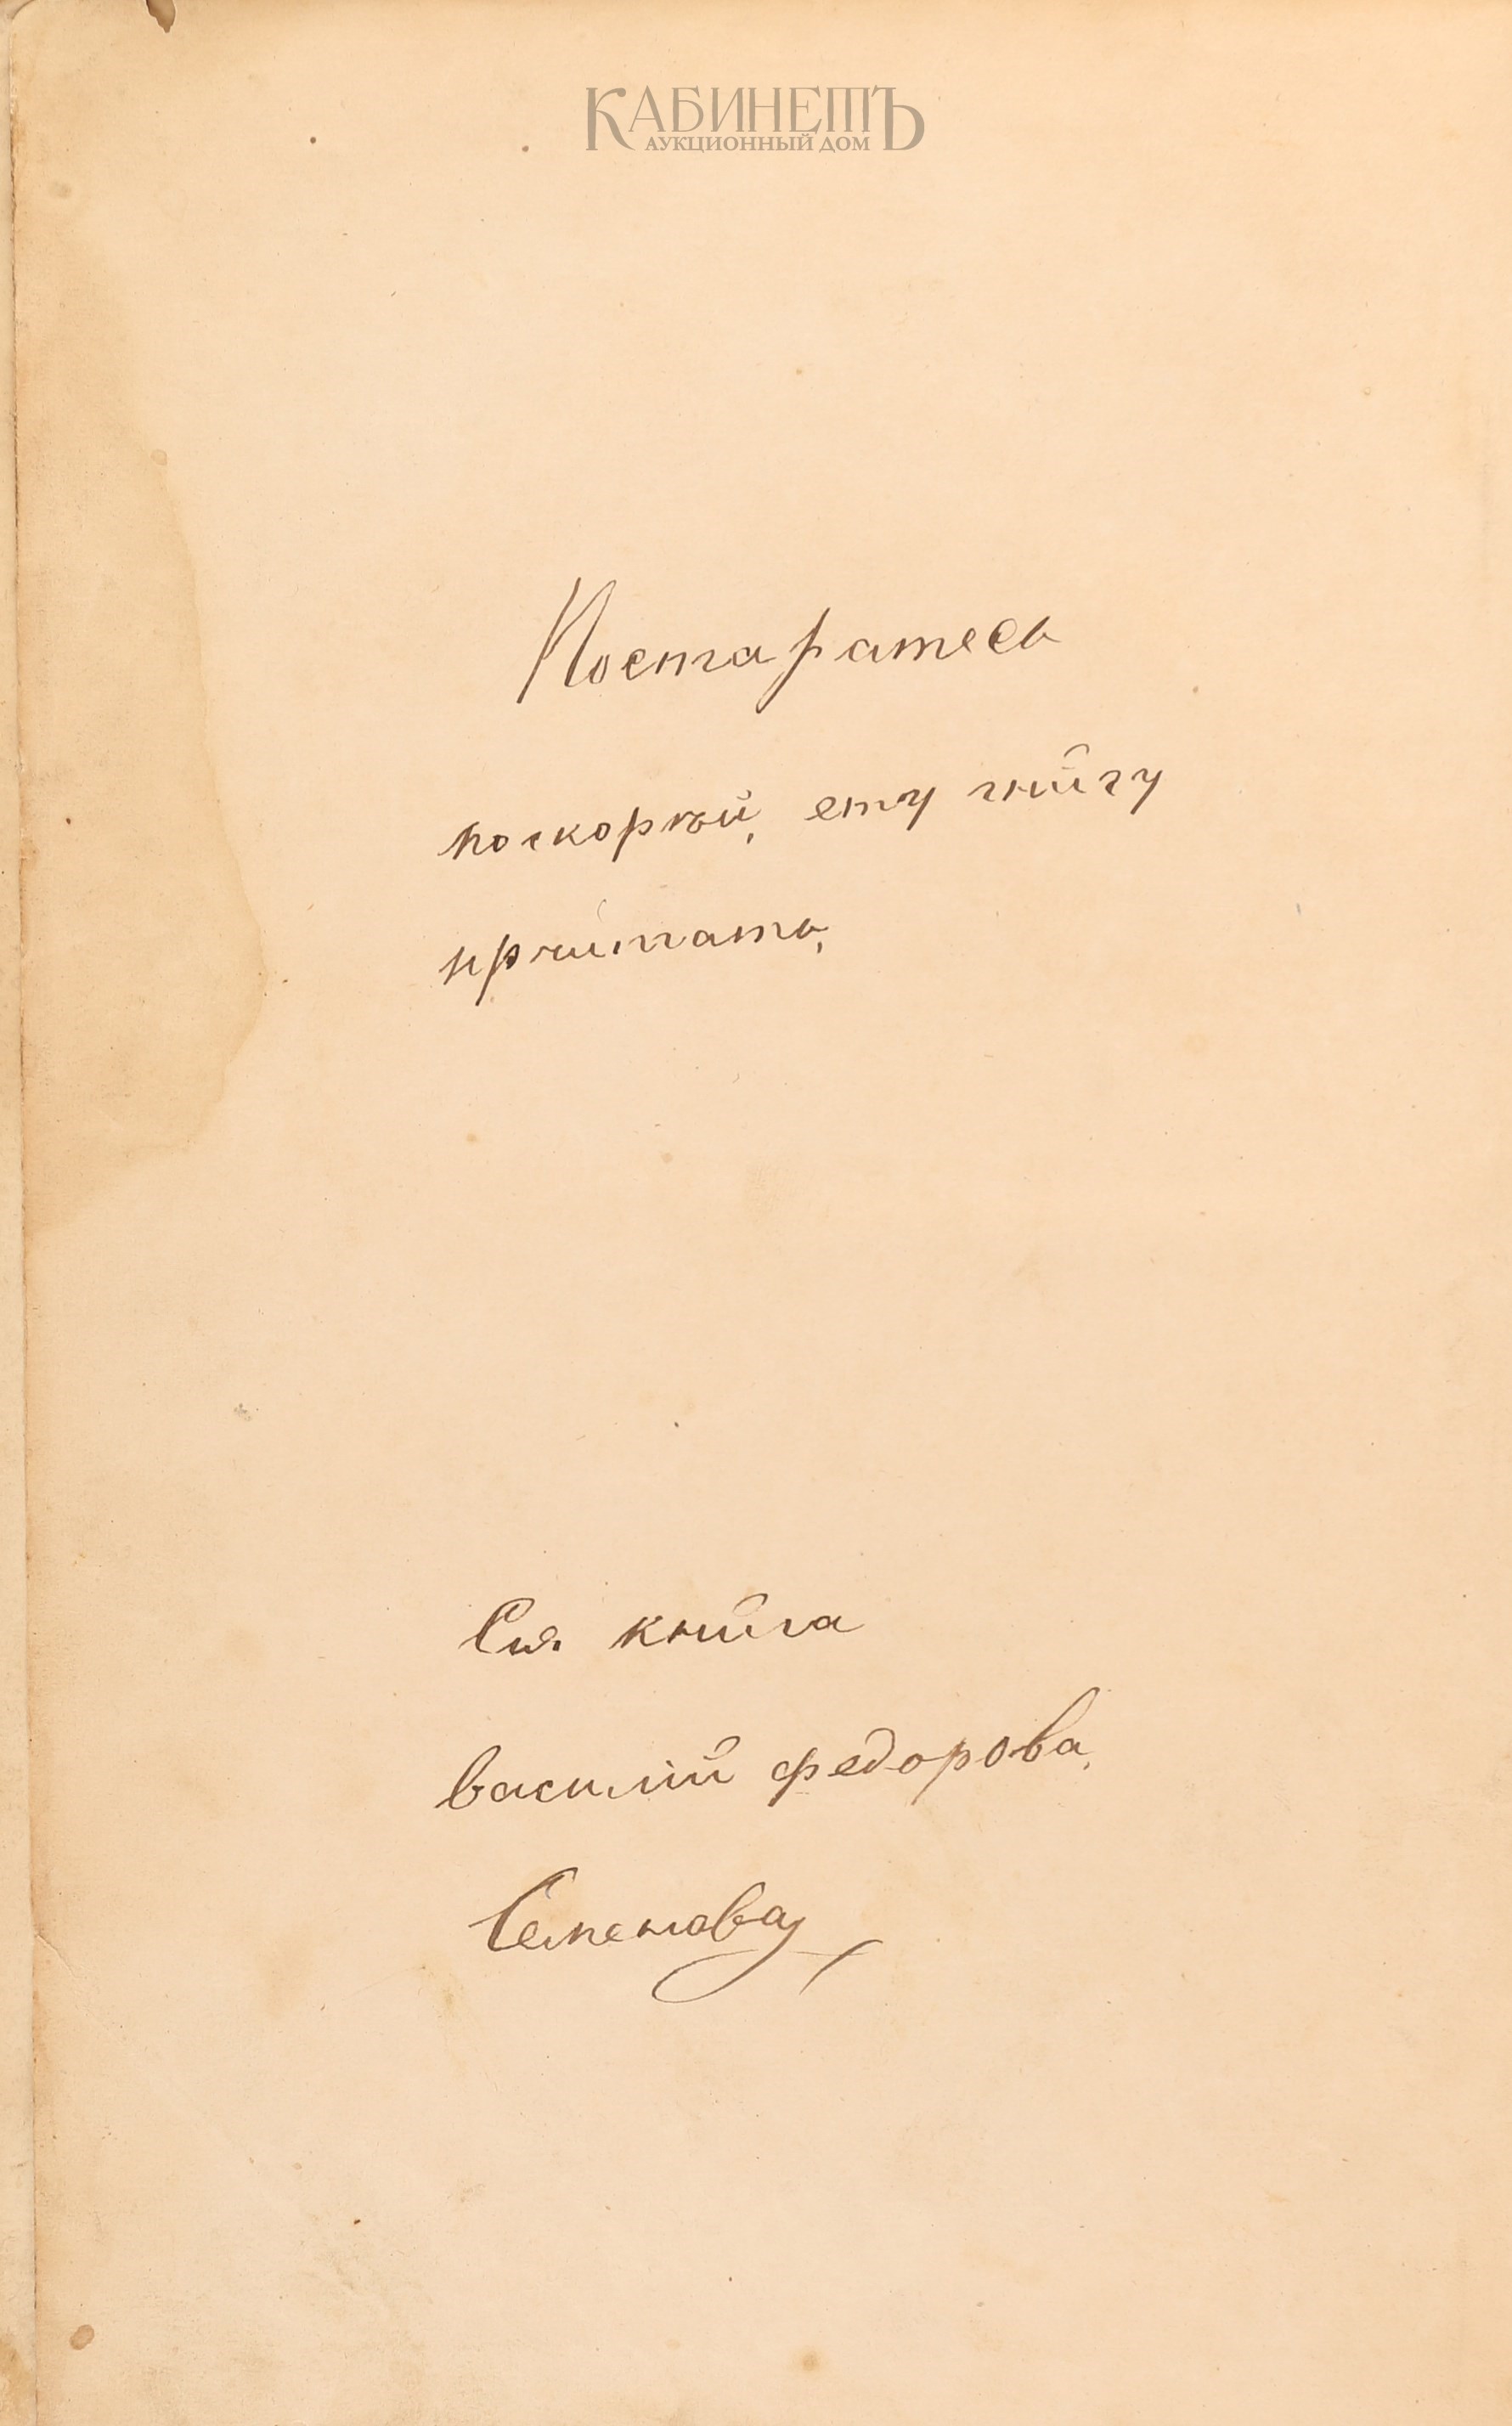 КАБИНЕТЪ
АУКЦИОННЫЙ ДОМ
Постаратесь
поскорѣй, ету книгу
прчитать,
Сия книга
василий федорова,
Семенова